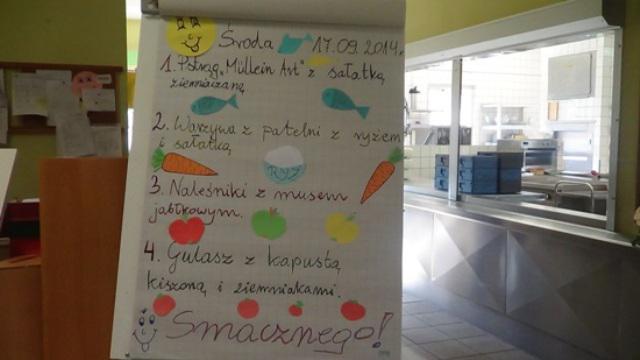 Środa 17.09.2014r.
1. Pstrąg „Müllein Art" z sałatką
ziemniaczaną
2. Warzywa z patelni z ryżem
i sałatką
RYŻ
3. Naleśniki z musem
jabłkowym.
4. Gulasz z kapustą
kiszoną i ziemniakami.
Smacznego!